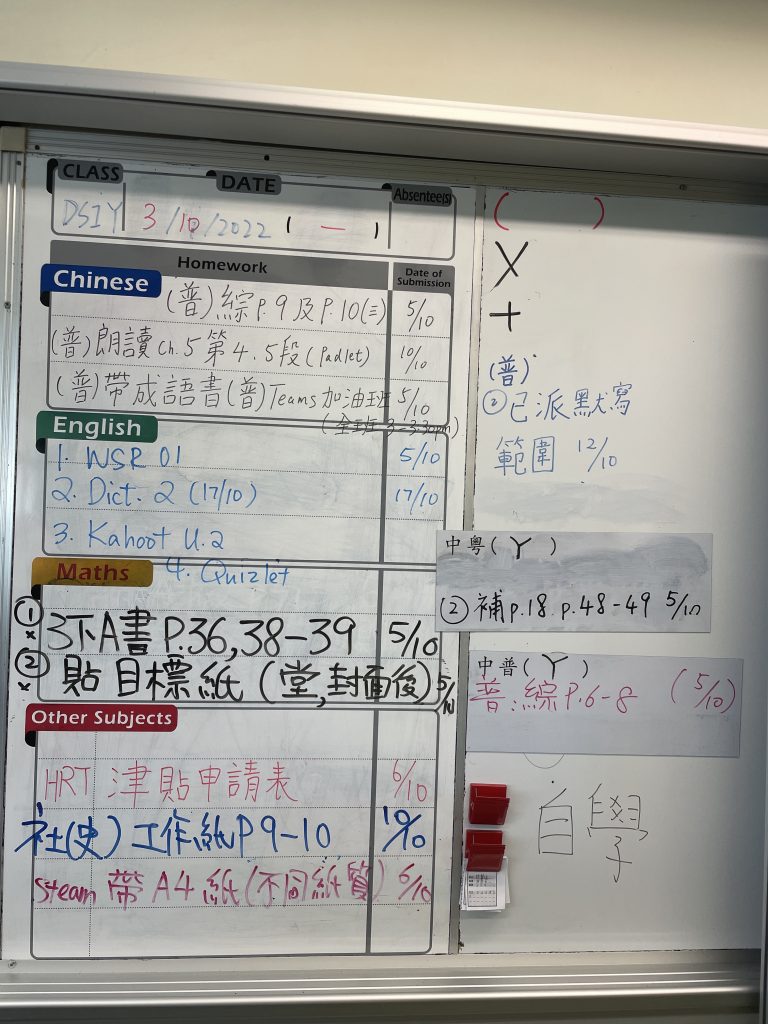 CLASS DATE Absentee(s)
DS1Y 3/10/2022 (一)
Homework Date of Submission
Chinese
(普)綜P.9及P.10(三) 5/10
(普)朗讀ch.5第4.5段(Padlet) 10/10
(普)帶成語書(普)Teams加油班 5/10
(全班3-3:30pm)
English
1. WSR 01 5/10
2. Dict. 2 (17/10) 17/10
3. Kahoot U.2
4. Quizlet
Maths
① 3下A書P.36,38-39 5/10
② 貼目標紙(堂,封面後) 5/10
Other Subjects
HRT 津貼申請表 6/10
社(史)工作紙P9-10 10/10
Steam 帶A4紙(不同紙質) 6/10
( )
X
+
(普)
②已派默寫
範圍 12/10
中粵(丫)
② 補p.18 p.48-49 5/10
中普(丫)
普:綜P.6-8 (5/10)
自學